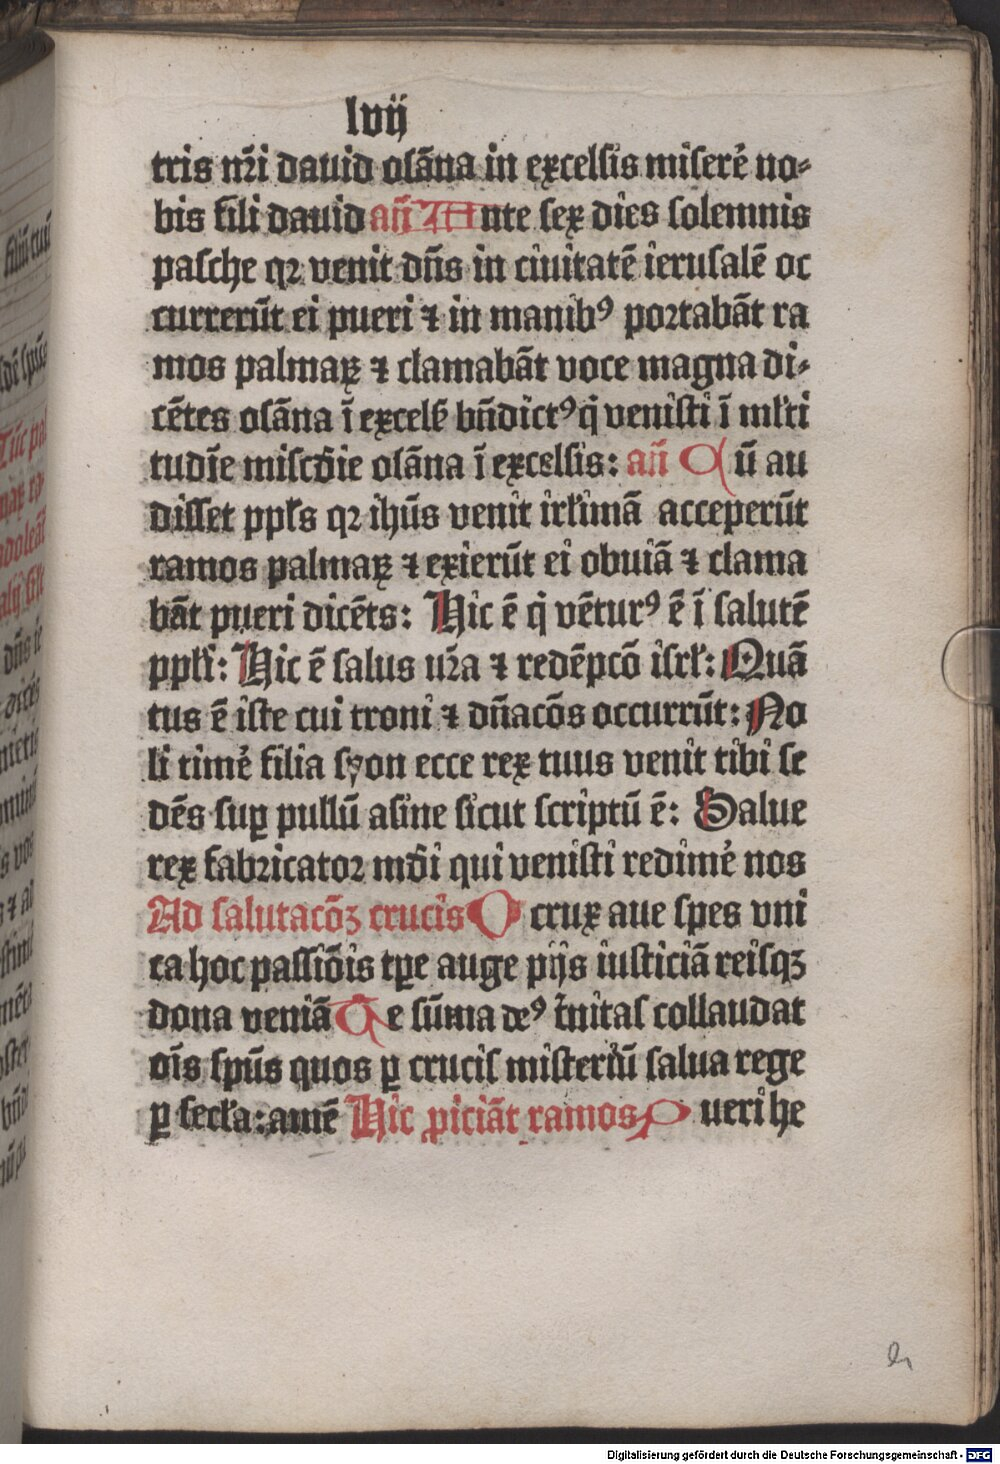 lvij
tris nr̃i dauid osãna in excelsis miserẽ no-
bis fili dauid añ Ante sex dies solemnis
pasche qꝛ venit dñs in ciuitatẽ ierusalẽ oc
currerũt ei pueri ⁊ in manibꝰ portabãt ra
mos palmaꝝ ⁊ clamabãt voce magna di-
cẽtes osãna ĩ excelẜ bñdictꝰ q̃ venisti ĩ ml̃ti
tudĩe misc̃die osãna ĩ excelsis: añ Cũ au
disset ppl̃s qꝛ ihũs venit irl̃imã acceperũt
ramos palmaꝝ ⁊ exierũt ei obuiã ⁊ clama
bãt pueri dicẽts: Hic ẽ q̃ vẽturꝰ ẽ ĩ salutẽ
ppl̃i: Hic ẽ salus nr̃a ⁊ redẽpcõ isrl̃: Quã
tus ẽ iste cui troni ⁊ dñacõs occurrũt: No
li timẽ filia syon ecce rex tuus venit tibi se
dẽs suꝑ pullũ asine sicut scriptũ ẽ: Salue
rex fabricator mũdi qui venisti redimẽ nos
Ad salutacõꝫ crucis O crux aue spes vni
ca hoc passiõis tꝑe auge pijs iusticiã reisqꝫ
dona veniã Te sũma deꝰ t̃nitas collaudat
oĩs spũs quos ꝑ crucis misteriũ salua rege
ꝑ secl̃a: amẽ Hic ꝓiciãt ramos P ueri he
Digitalisierung gefördert durch die Deutsche Forschungsgemeinschaft - DFG